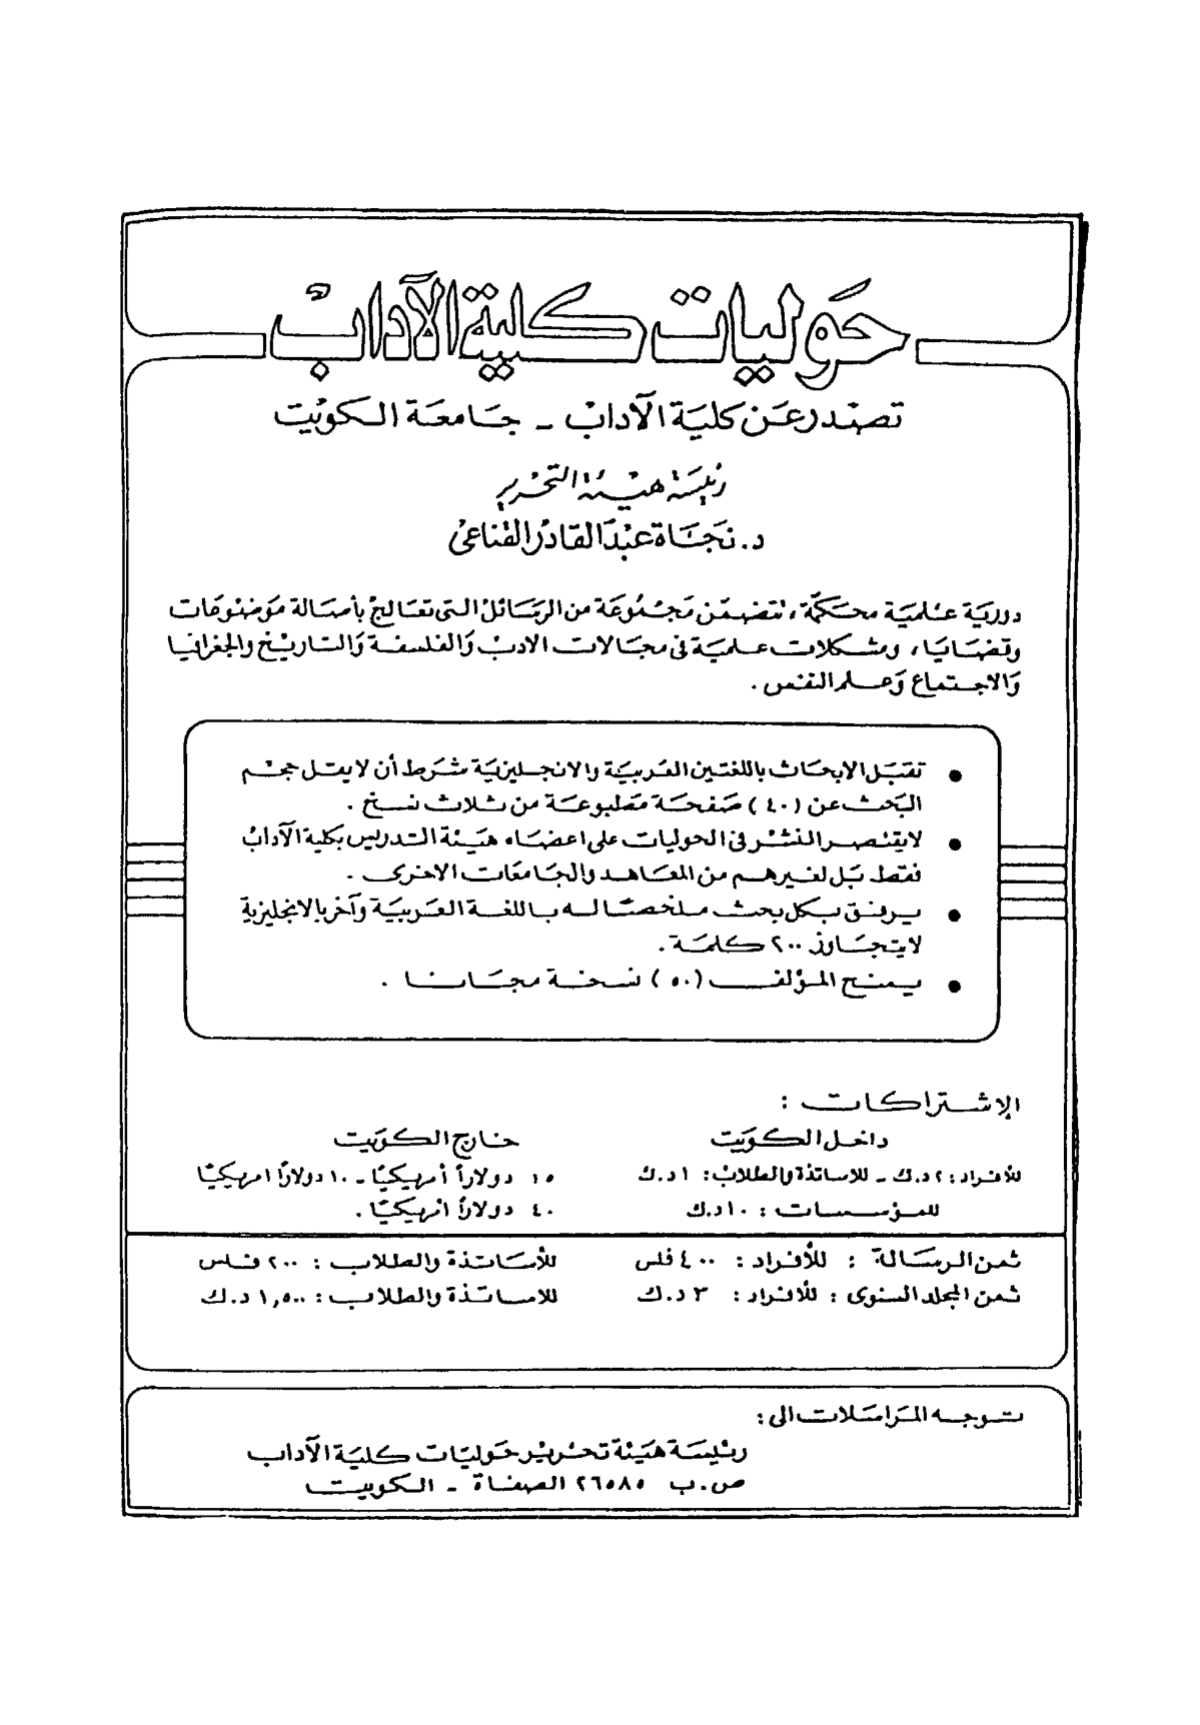 حوليات كلية الآداب
تصدر عن كلية الآداب - جامعة الكويت
رئيسة هيئة التحرير
د. نجاة عبد القادر القناعي
دورية علمية محكمة، تتضمن مجموعة من الرسائل التى تعالج بأصالة موضوعات
وقضايا، ومشكلات علمية فى مجالات الادب والفلسفة والتاريخ والجغرافيا
والاجتماع وعلم النفس .
• تقبل الابحاث باللغتين العربية والانجليزية شرط أن لا يقل حجم
البحث عن (٤٠) صفحة مطبوعة من ثلاث نسخ .
• لا يقتصر النشر فى الحوليات على اعضاء هيئة التدريس بكلية الآداب
فقط بل لغيرهم من المعاهد والجامعات الاخرى .
• يرفق بكل بحث ملخصًا له باللغة العربية وآخر بالانجليزية
لا يتجاوز ٢٠٠ كلمة .
• يمنح المؤلف (٥٠) نسخة مجانا .
الإشتراكات :
داخل الكويت
خارج الكويت
للأفراد: ٢ د.ك - للاساتذة والطلاب: ١ د.ك
١٥ دولاراً أمريكيًا - ١٠ دولارًا امريكيًا
للمؤسسات : ١٠ د.ك
٤٠ دولاراً امريكيًا .
ثمن الرسالة : للأفراد : ٤٠٠ فلس
للأساتذة والطلاب : ٢٠٠ فلس
ثمن المجلد السنوى : للأفراد : ٣ د.ك
للاساتذة والطلاب : ١,٥٠٠ د.ك
توجه المراسلات الى :
رئيسة هيئة تحرير حوليات كلية الآداب
ص.ب ٢٦٥٨٥ الصفاة - الكويت